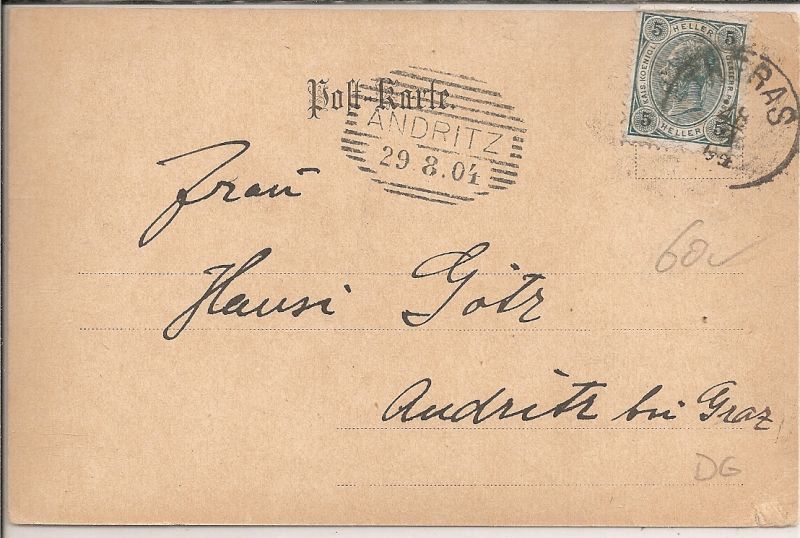 Post-Karte.
5 HELLER 5
KAIS. KOENIGL.
5 HELLER 5
ERAS
ANDRITZ
29 8.04
Frau
Hansi Götz
Andritz bei Graz
60
DG